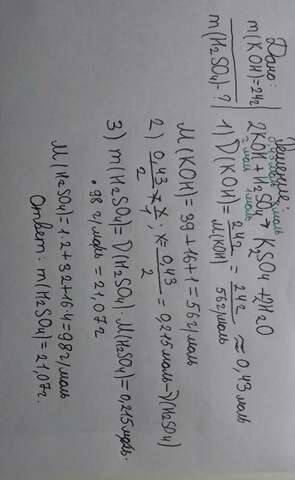 Дано:
m(KOH)=24г
m(H2SO4)-?
Решение:
0,43моль xмоль
2KOH+H2SO4→K2SO4+2H2O
2моль 1моль
1) ν(KOH)=24г/M(KOH)=24г/56г/моль≈0,43моль
M(KOH)=39+16+1=56г/моль
2) 0,43/2=x/1; x=0,43/2=0,215моль-ν(H2SO4)
3) m(H2SO4)=ν(H2SO4)·M(H2SO4)=0,215моль·
·98г/моль=21,07г
M(H2SO4)=1·2+32+16·4=98г/моль
Ответ: m(H2SO4)=21,07г.